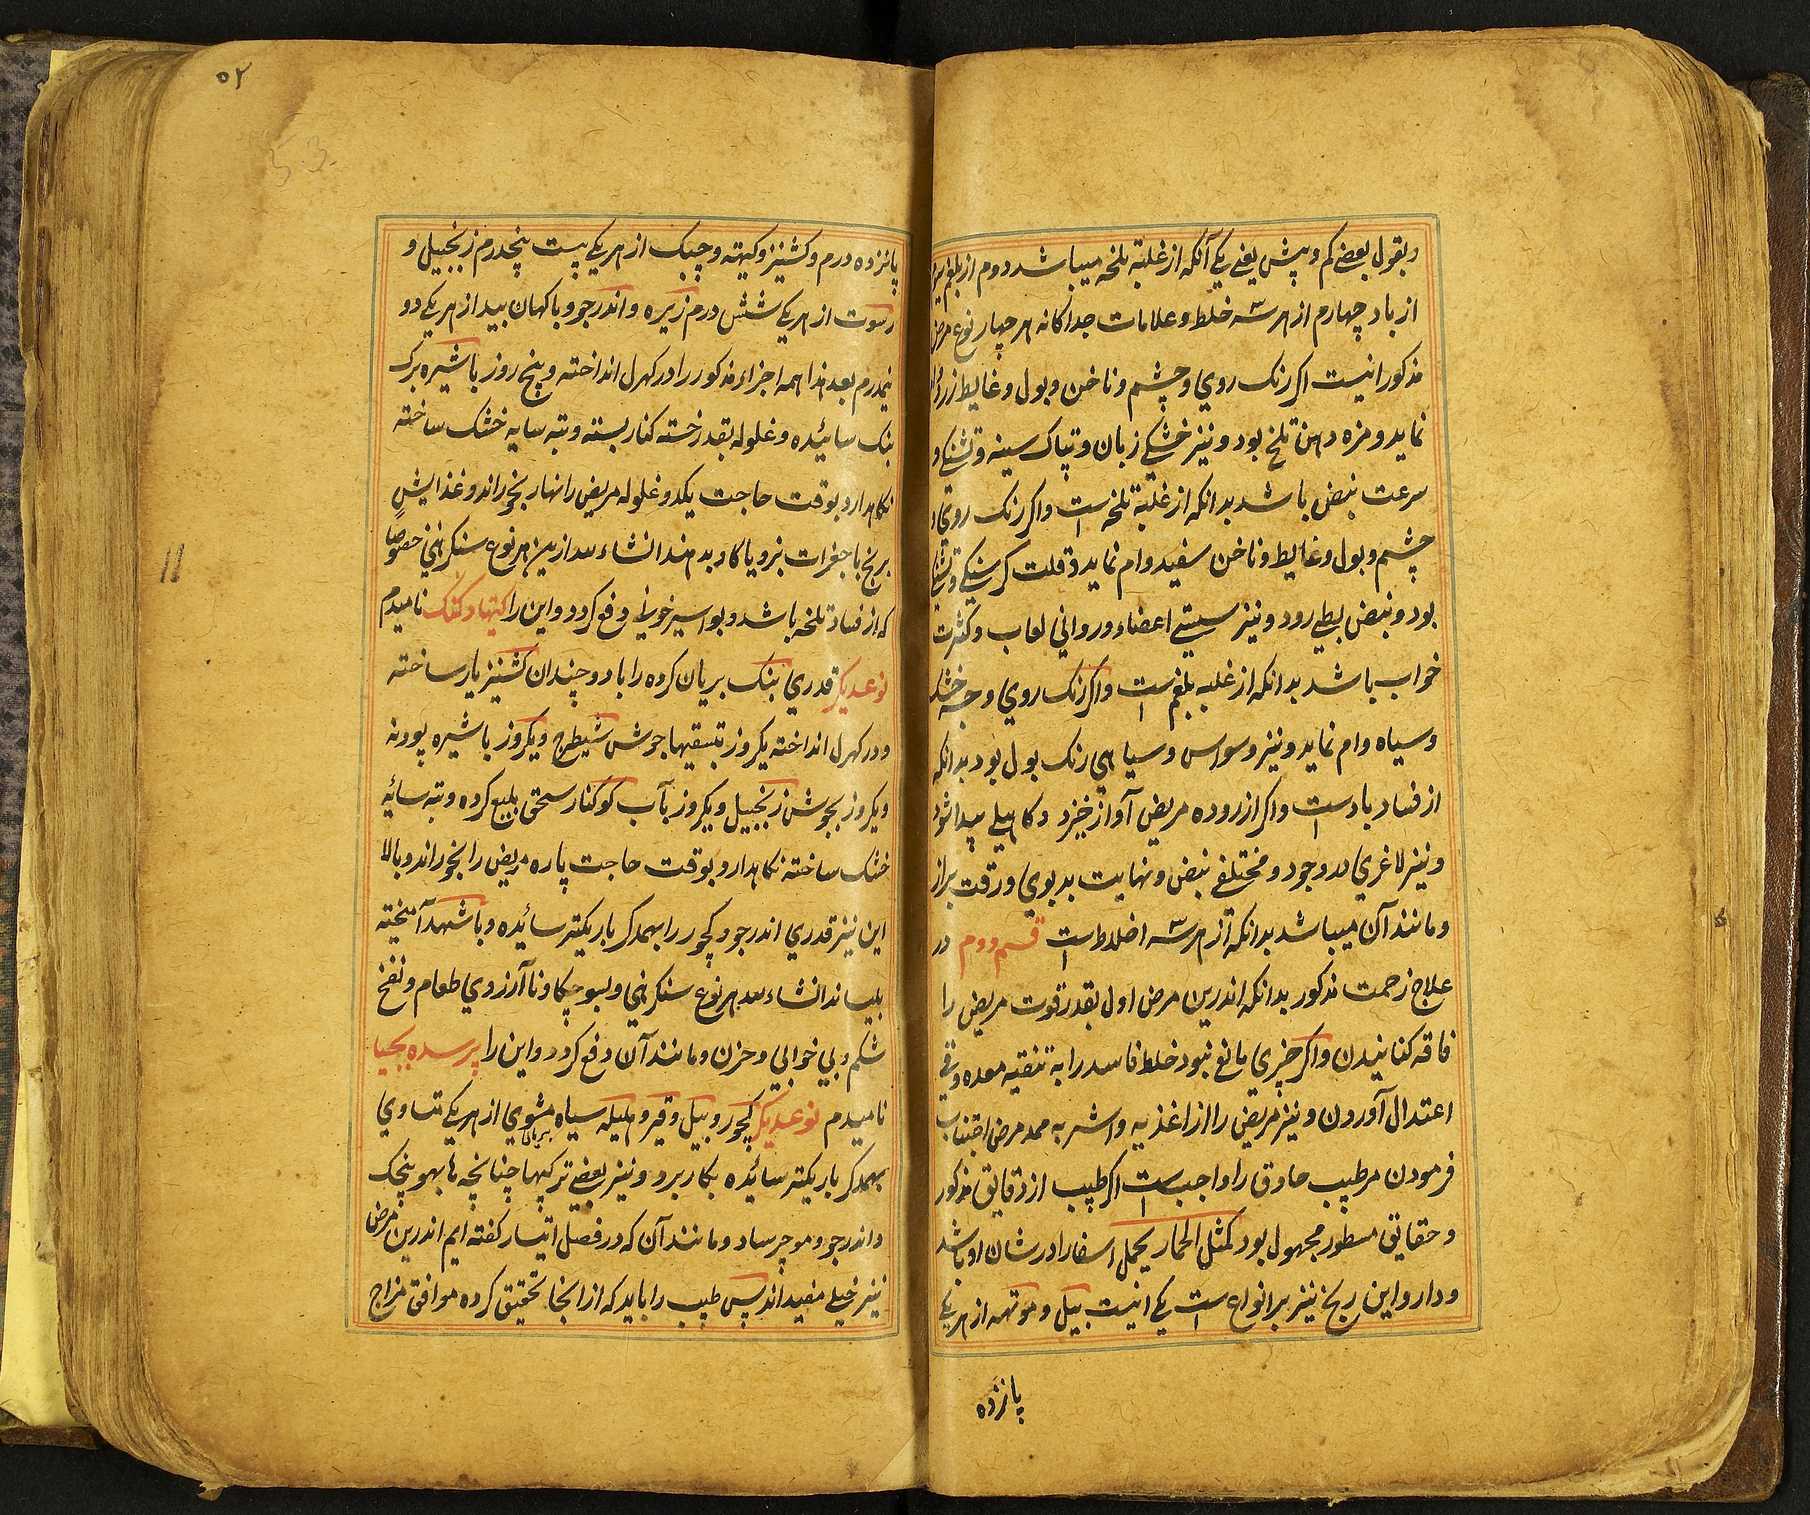 و بقول بعضی کم و بیش یعنی یکی آنکه از غلبهٔ تلخه میباشد دوم از بلغم سیوم
از باد چهارم از هر سه خلط و علامات جداکانه هر چهار نوع مرض
مذکور اینست اکر رنک روي و چشم و ناخن و بول و غایط زرد
نماید و مزه دهن تلخ بود و نیز خشکي زبان و تپاک سینه و تشنکي و
سرعت نبض باشد بدانکه از غلبهٔ تلخه است و اکر رنک روي و
چشم و بول و غایط و ناخن سفید وام نماید و قلت کرسنکي و تشنکي
بود و نبض بطي رود و نیز سستي اعضاء و رواني لعاب و کثرت
خواب باشد بدانکه از غلبه بلغم است و اکر رنک روي و جثه خشک
و سیاه وام نماید و نیز وسواس و سیاهي رنک بول بود بدانکه
از فساد باد است و اکر از روده مریض آواز خیزد و کاهیلي پیدا شود
و نیز لاغري در وجود و مختلفي نبض و نهایت بدبوي و رقت براز
و مانند آن میباشد بدانکه از هر سه اخلاط است قسم دوم در
علاج زحمت مذکور بدانکه اندرین مرض اول بقدر قوت مریض را
فاقه کنانیدن و اکر چیزي مانع نبود خلط فاسد را به تنقیه معده و قي
اعتدال آوردن و نیز مریض را از اغذیه و اشربه ممد مرض اجتناب
فرمودن مر طبیب حاوق را واجب است اکر طبیب از دقایق مذکور
و حقایق مسطور مجهول بود کمثل الحمار یحمل اسفارا در شان او باشد
و دارو این رنج نیز بر انواع است یکي اینست بیل و موتهه از هر یکي
پانزده
۵۲
53
پانزده درم و کشنیز و کیهته و چبک از هر یکي بیست پنجدرم زنجبیل و
رسوت از هر یکي شش درم زیره و اندرجو و باکهان بید از هر یکي دو
نیمدرم بعد هذا همه اجزاء مذکور را در کهرل انداخته و پنج روز با شیره برک
بنک سائیده و غلوله بقدر خسته کنار بسته و بته سایه خشک ساخته
نکاهدارد بوقت حاجت یکدو غلوله مریض را نهار بخوراند و غذایش
برنج با جغرات بز و یا کاو بدهند انشاء الله از ین هر نوع سنکرهني خصوصا
که از فساد تلخه باشد و بواسیر خوني دفع کردد و این را کیتهاد کتک نامیدم
نوعدیکر قدري بنک بریان کرده را با دو چندان کشنیز یار ساخته
و در کهرل انداخته یکروز بتسقیها جوش شیطرج و یکروز با شیره پودنه
و یکروز بجوش زنجبیل و یکروز بآب کوکنار سحق بلیغ کرده و بته سائه
خشک ساخته نکاهدارد بوقت حاجت پاره مریض را بخوراند و بالا
این نیز قدري اندرجو و کچور را بهمدکر باریکتر سائیده و با شهد آمیخته
بلیساند انشاء الله هر نوع سنکرهني و بسوچکا و نا آرزوي طعام و نفخ
شکم و بي خوابي و حزن و مانند آن دفع کردد و این را پرسده بجیا
نامیدم نوعدیکر کچور و بیل و قیر و هلیله سیاه مشوي از هر یکي تساوي
بریان
بهمدکر باریکتر سائیده بکار برد و نیز بعضي ترکیبها چنانچه هابهو پنچک
و اندرجو و موچرساد و مانند آن که در فصل اتیسار کفته ایم اندرین مرض
نیز خیلے مفید اند پس طبیب را باید که از انجا تحقیق کرده موافق مزاج
11